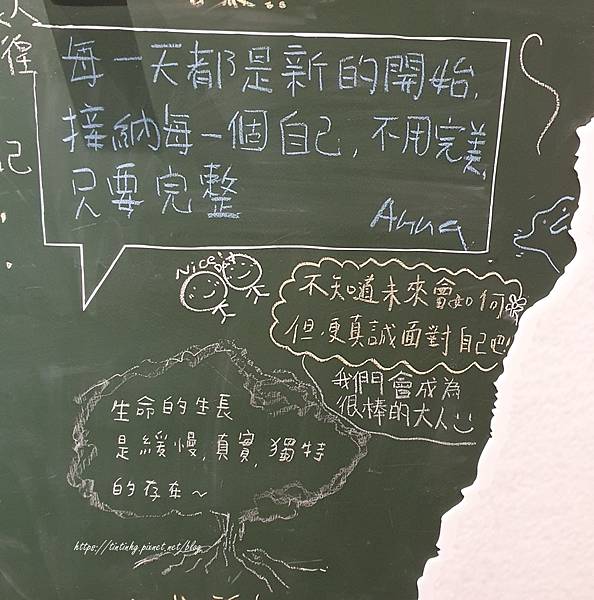 每一天都是新的開始,
接納每一個自己, 不用完美,
只要完整
Anna
Nice
不知道未來會如何
但,更真誠面對自己吧!
我們會成為
很棒的大人
生命的生長
是緩慢,真實,獨特
的存在~
https://tintinhg.pixnet.net/blog